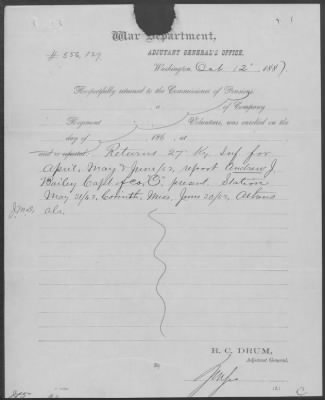 War Department,
ADJUTANT GENERAL'S OFFICE,
# 556,129
Washington, Oct 12" 1887.
Respectfully returned to the Commissioner of Pensions.
a of Company
Regiment Volunteers, was enrolled on the
day of 186 , at
and is reported Returns 27 Ky Inf for
April, May & June/62, report Andrew J.
Bailey Capt of Co, present. Station
May 31/62, Corinth, Miss, June 30/62, Athens
Ala.
R. C. DRUM,
Adjutant General.